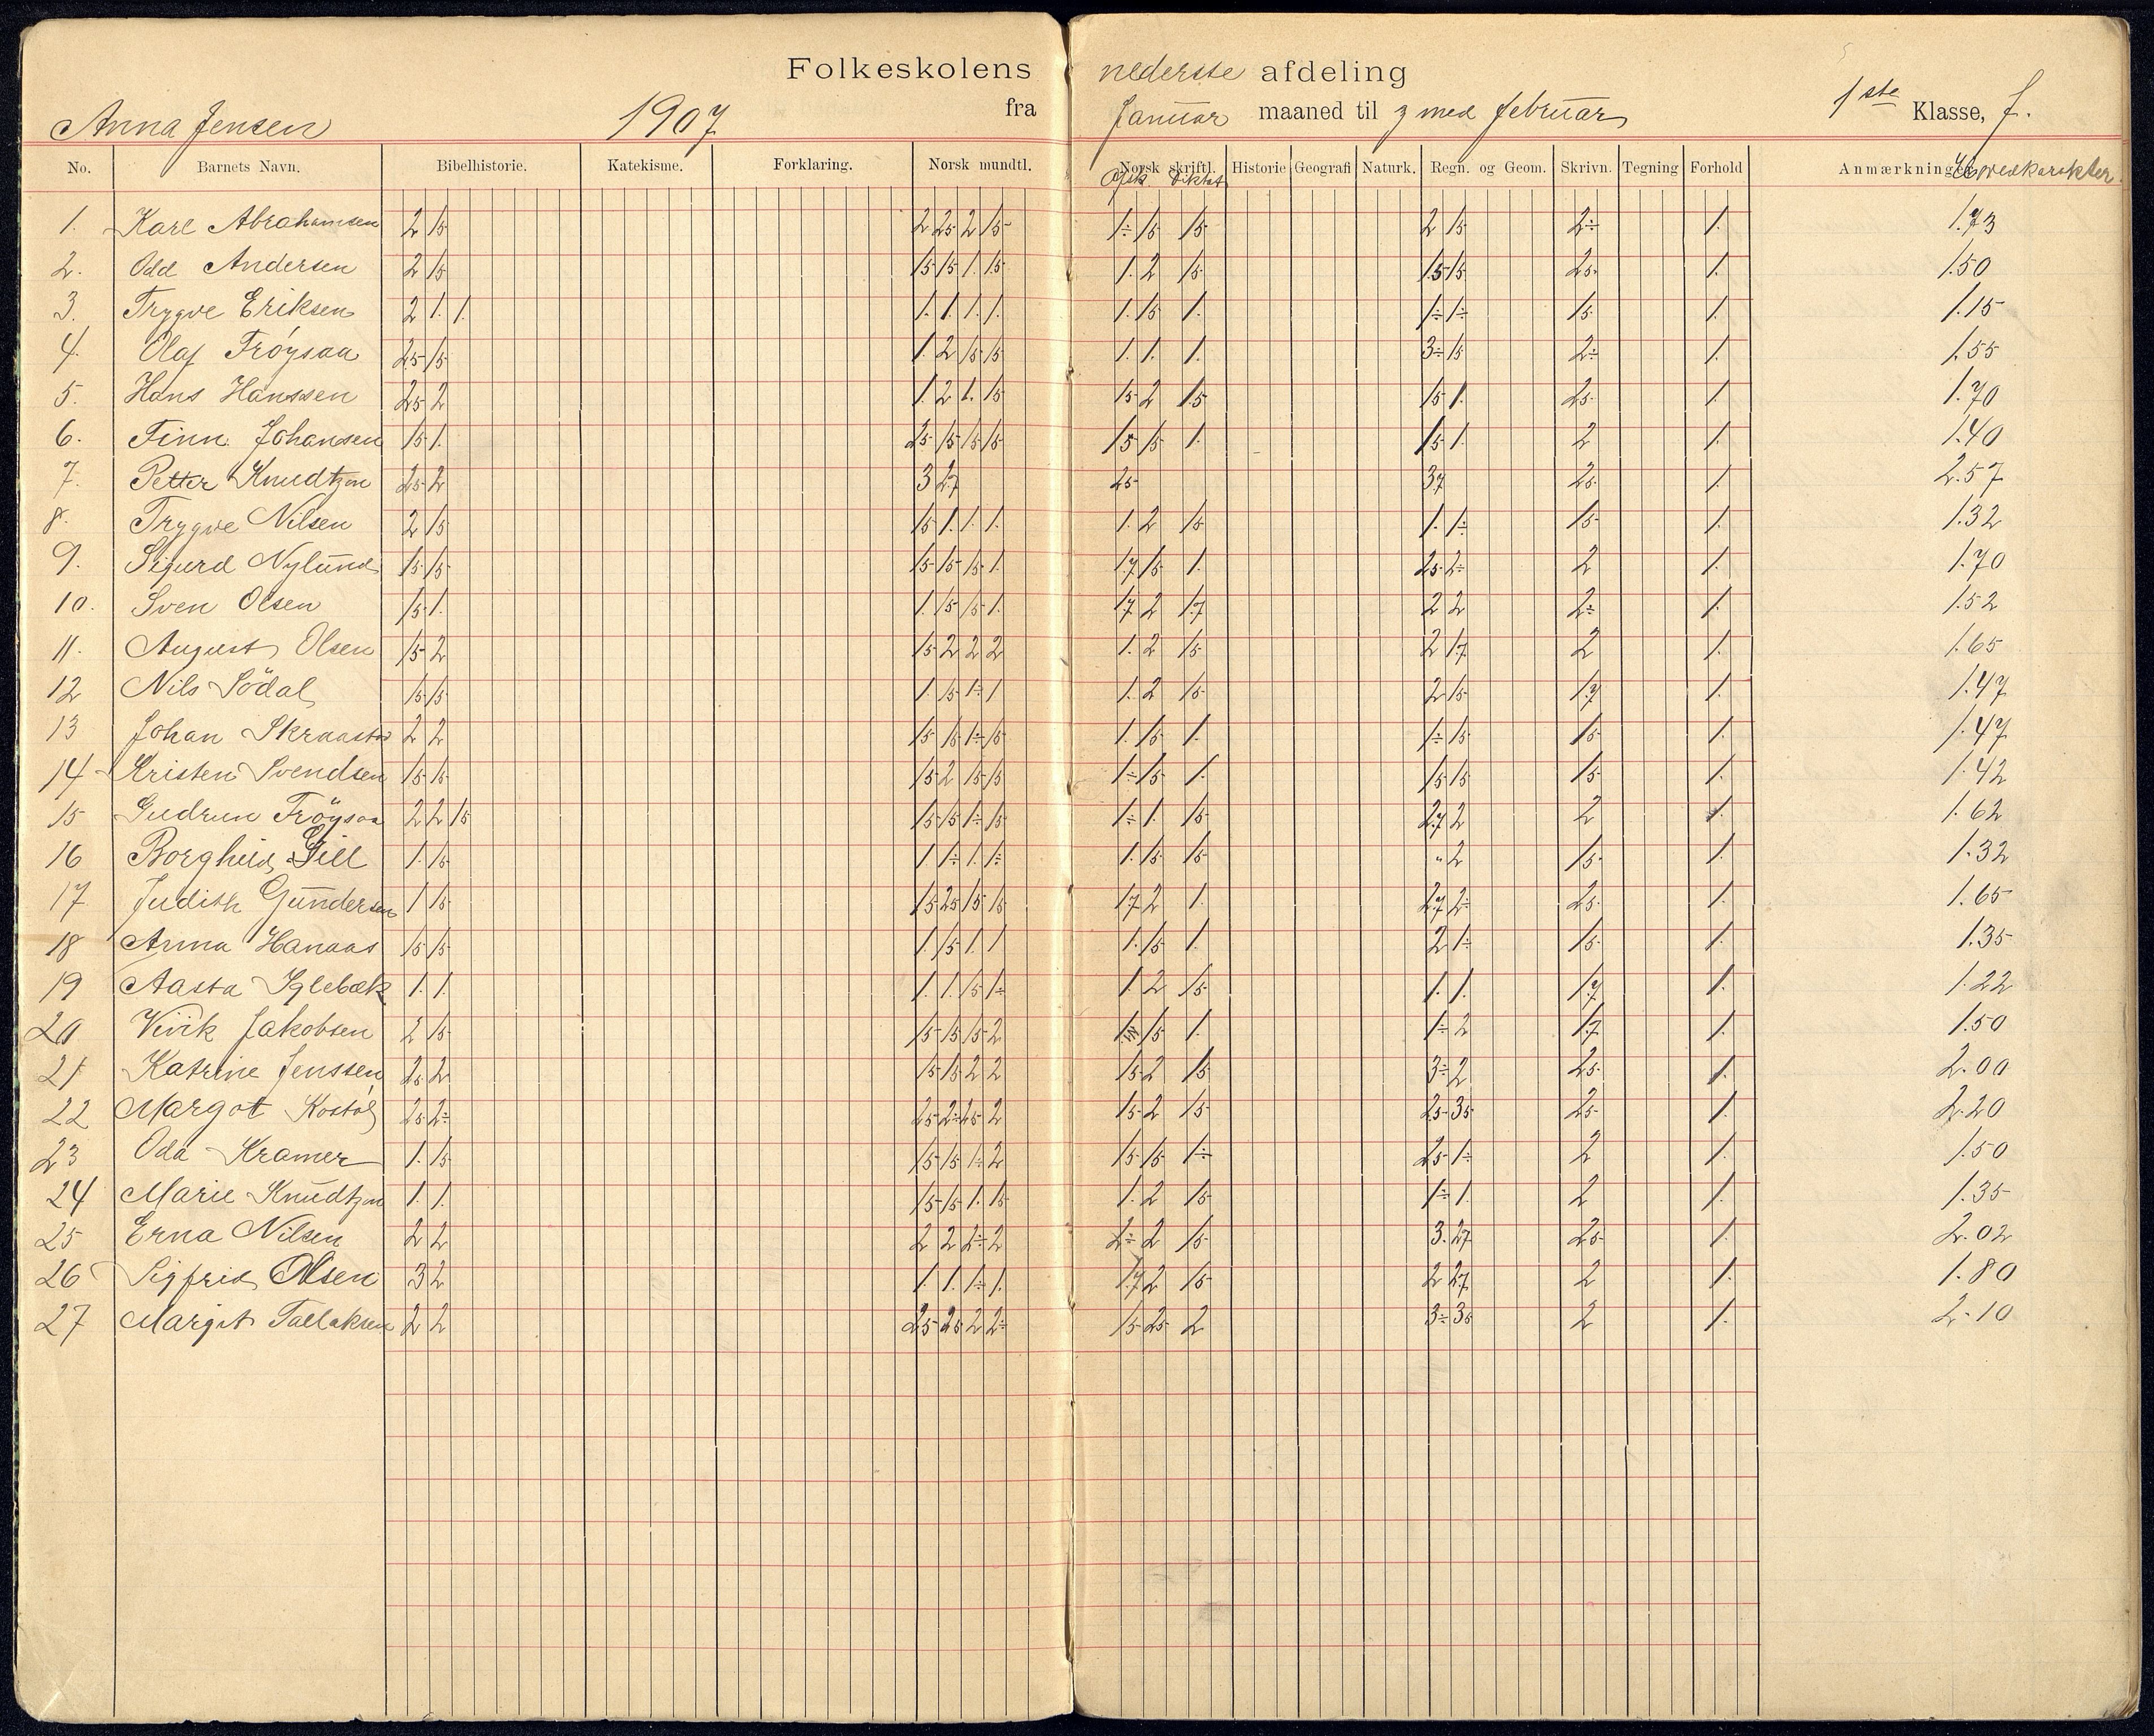 Folkeskolens nederste afdeling
Anna Jensen 1907 fra Januar maaned til med februar 1ste Klasse, f.
No. Barnets Navn. Bibelhistorie. Katekisme. Forklaring. Norsk mundtl. Norsk skriftl. Historie Geografi Naturk. Regn. og Geom. Skrivn. Tegning Forhold Anmærkninger
Afsk. Diktat Hovedkarakter.
1. Karl Abrahamsen 2 15 2 25 2 15 1÷ 15 15 2 15 2÷ 1. 1.73
2. Odd Andersen 2 15 15 15 1. 15 1. 2 15 15 15 25 1. 1.50
3. Trygve Eriksen 2 1. 1. 1. 1. 1. 1. 1. 15 1. 1÷ 1÷ 15 1. 1.15
4. Olaf Tröysaa 25 15 1. 2 15 15 1. 1. 1. 3÷ 15 2÷ 1. 1.55
5. Hans Hanssen 25 2 1. 2 1. 15 15 2 15 15 1. 25 1. 1.70
6. Finn Johansen 15 1. 25 15 15 15 15 15 1. 15 1. 2 1. 1.40
7. Petter Knudtzon 25 2 3 27 25 37 25 1. 2.57
8. Trygve Nilsen 2 15 15 1. 1. 1. 1. 2 15 1. 1÷ 15 1. 1.32
9. Sigurd Nylund 15 15 15 15 15 1. 17 15 1. 25 2÷ 2 1. 1.70
10. Sven Olsen 15 1. 1. 15 15 1. 17 2 17 2 2 2÷ 1. 1.52
11. August Olsen 15 2 15 2 2 2 1. 2 15 2 17 2 1. 1.65
12 Nils Södal 15 15 1. 15 1÷ 1 1. 2 15 2 15 17 1. 1.47
13 Johan Skraastad 2 2 15 15 1÷ 15 1. 15 1. 1÷ 15 15 1. 1.47
14 Kristen Svendsen 15 15 15 2 15 15 1÷ 15 1. 15 15 15 1. 1.42
15 Gudrun Tröysaa 2 2 15 15 15 1÷ 15 1÷ 1. 15 27 2 2 1. 1.62
16 Borghild Gill 1. 15 1 1÷ 1. 1÷ 1. 15 15 " 2 15 1. 1.32
17 Judith Gundersen 1 15 15 25 15 15 17 2 1. 27 2÷ 25 1. 1.65
18 Anna Hanaas 15 15 1. 15 1. 1 1. 15 1. 2 1÷ 15 1. 1.35
19 Aasta Iglebæk 1. 1. 1. 1. 15 1÷ 1. 2 15 1. 1. 17 1. 1.22
20 Jakobsen 2 15 15 15 15 2 15 1. 1÷ 2 17 1. 1.50
21 Katrine Jenssen 25 2 15 15 2 2 15 2 15 3÷ 2 25 1. 2.00
22 Margot Kostöl 25 2÷ 25 2÷ 25 2 15 2 15 25 35 25 1. 2.20
23 Oda Kramer 1. 15 15 15 1÷ 2 15 15 1÷ 25 1÷ 2 1. 1.50
24 Marie Knudtzon 1. 1. 15 15 1. 15 1. 2 15 1÷ 1. 2 1. 1.35
25 Erna Nilsen 2 2 2 2 2÷ 2 2÷ 2 15 3. 27 25 1. 2.02
26 Sigfrid Olsen 3 2 1. 1. 1÷ 1. 17 2 15 2 27 2 1. 1.80
27 Margit Tallaksen 2 2 25 25 2 2÷ 15 25 2 3÷ 35 2 1. 2.10